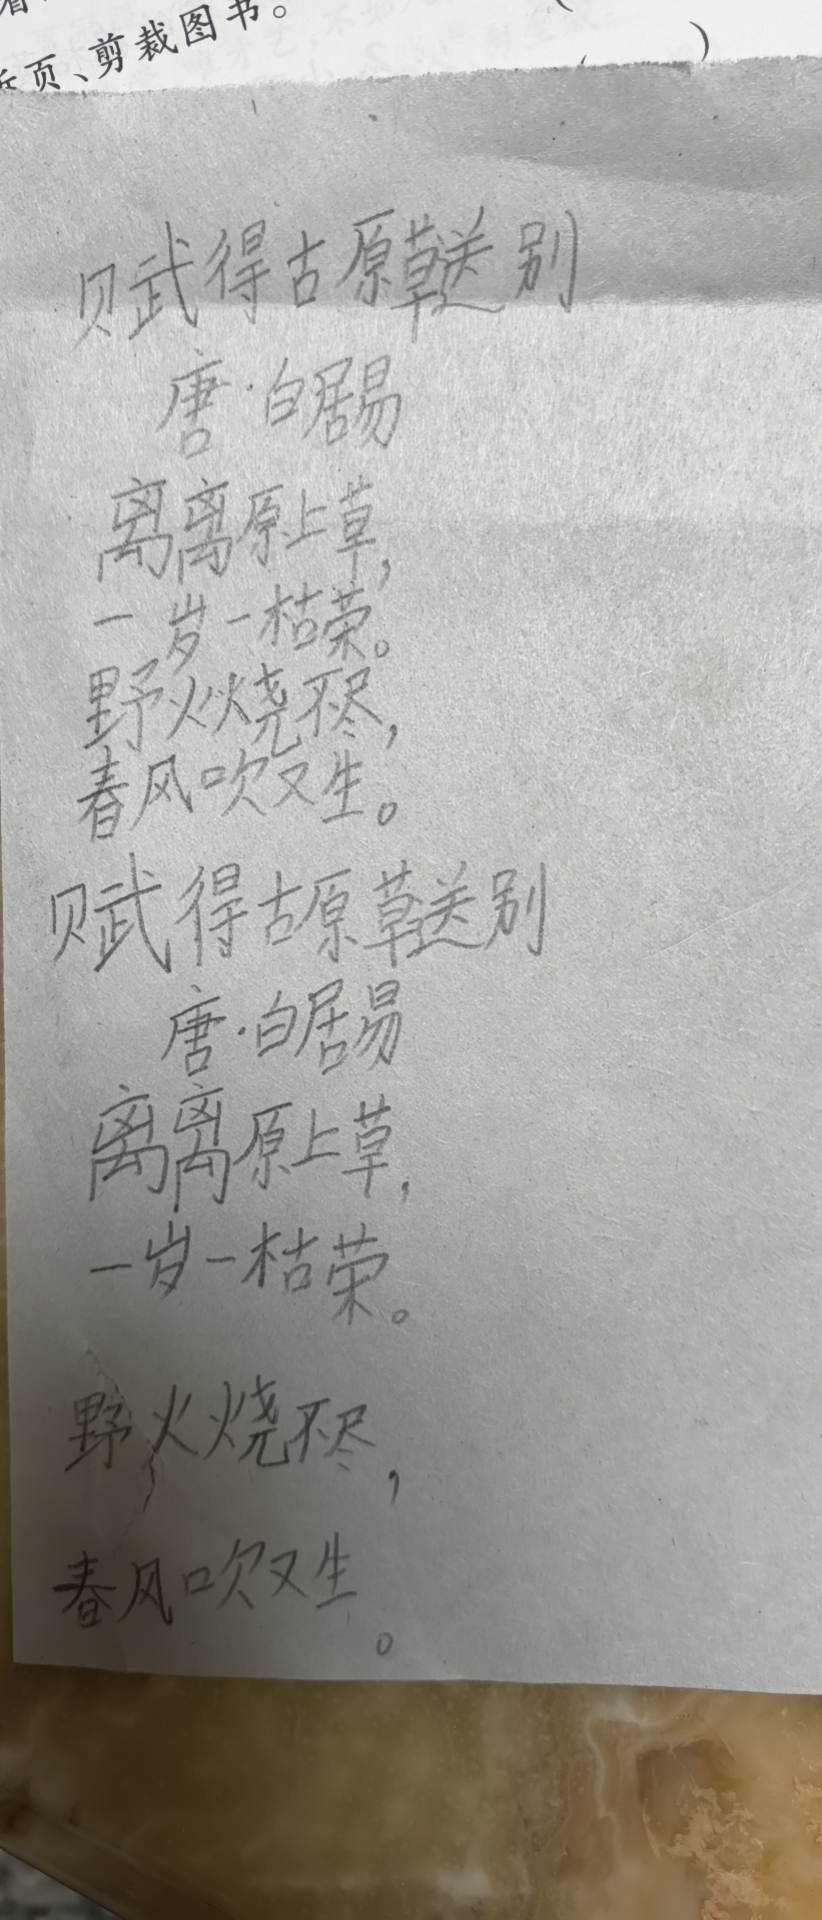 页、剪裁图书。
赋得古原草送别
唐·白居易
离离原上草，
一岁一枯荣。
野火烧不尽，
春风吹又生。
赋得古原草送别
唐·白居易
离离原上草，
一岁一枯荣。
野火烧不尽，
春风吹又生。